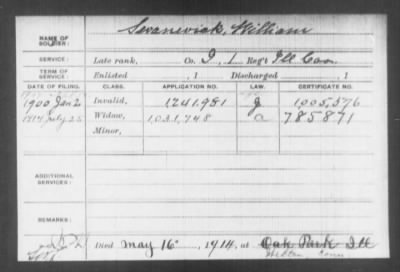 NAME OF SOLDIER: Swanewick, William
SERVICE: Late rank, Co. I, 1 Reg't Ill Cav.
TERM OF SERVICE: Enlisted , 1 Discharged , 1
DATE OF FILING. CLASS. APPLICATION NO. LAW. CERTIFICATE NO.
1900 Jan 2 Invalid, 1241,981 J 1,005,576
1914 July 25 Widow, 1031,748 a 785871
Minor,
ADDITIONAL SERVICES:
REMARKS:
Died May 16 , 1914, at Oak Park Ill
Conn